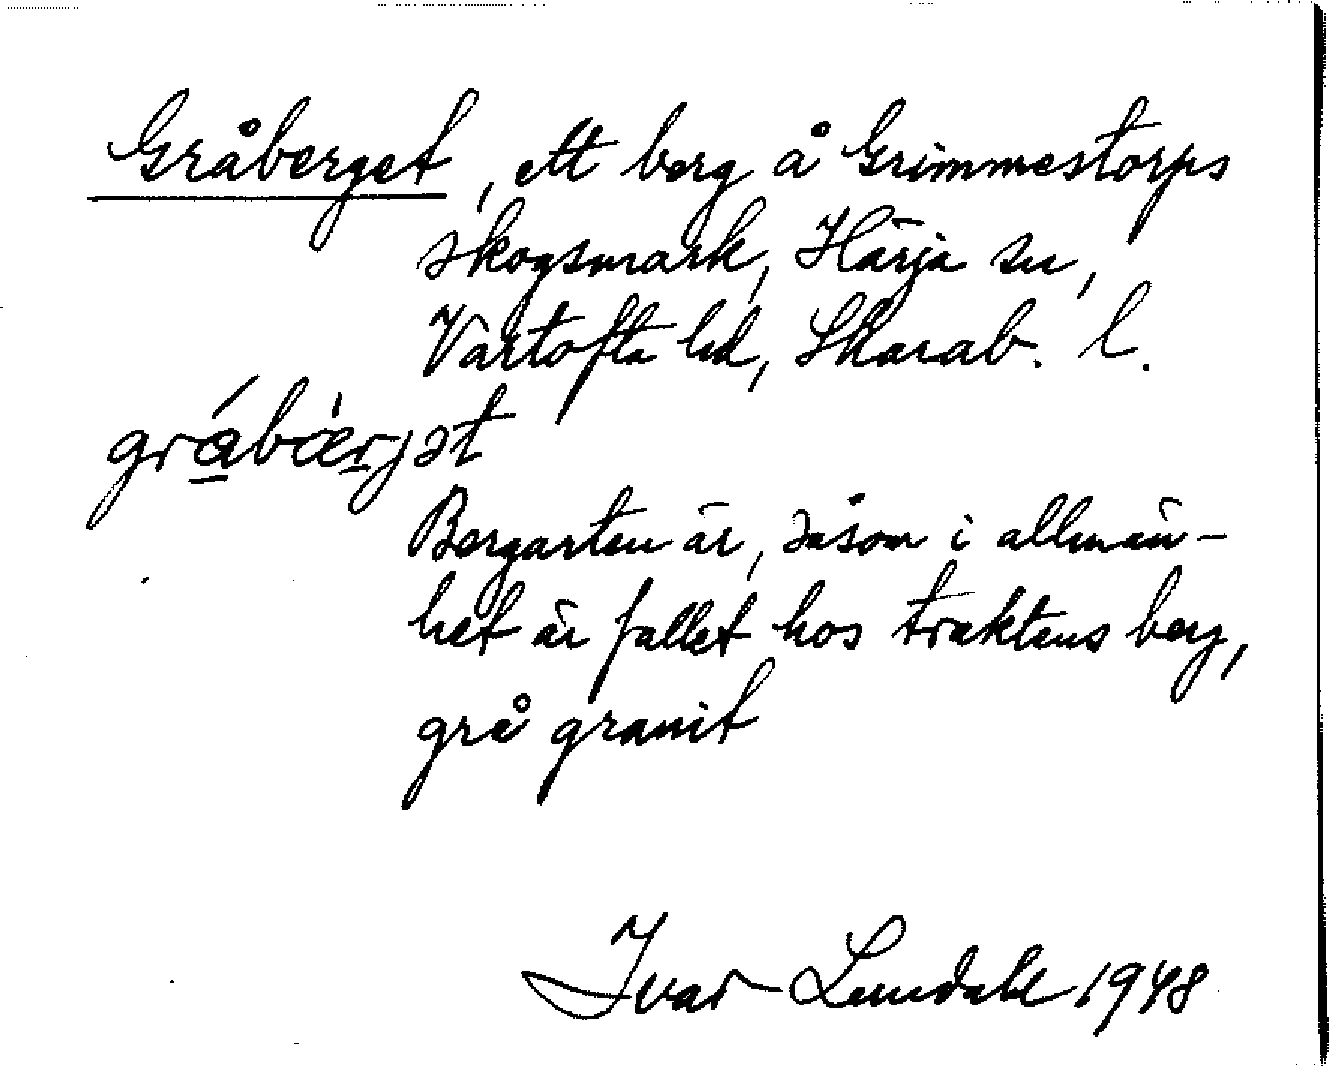 Gråberget, ett berg å Grimmestorps
skogsmark, Härja sn,
Vartofta hd, Skarab. l.
grábæ̀rjət
Bergarten är, såsom i allmän-
het är fallet hos traktens berg,
grå granit
Ivar Lundahl 1948